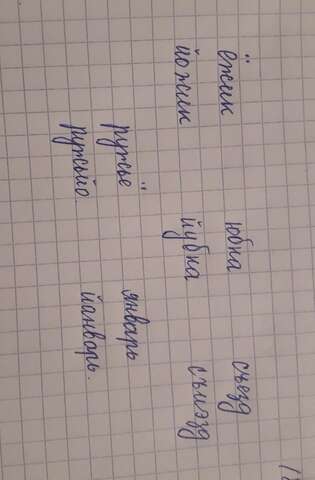 Ёжик юбка съезд
йожик йубка съиэзд
ружьё январь
ружьйо йанварь.